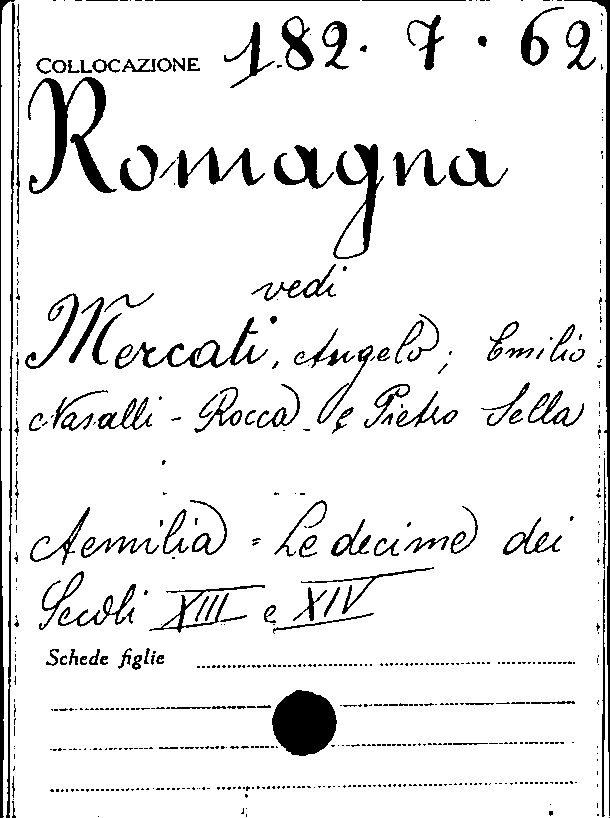 COLLOCAZIONE 182. 7. 62
Romagna
vedi
Mercati, Angelo; Emilio
Nasalli-Rocca e Pietro Sella
Aemilia = Le decime dei
Secoli XIII e XIV
Schede figlie